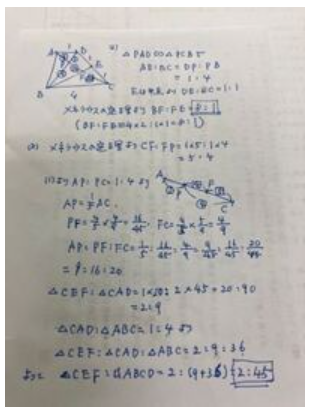 (1)
△PAD∽△PCBで
AD:BC = DP:PB
= 1:4
DE:BC = 1:1
メネラウスの定理より BF:FE = 8:1
(BF:FE = 4×2:1×1 = 8:1)
(2) メネラウスの定理より CF:FP = 1×5:1×4
= 5:4
(1)より AP:PC = 1:4 より
AP = 1/5 AC.
PF = 4/5 × 4/9 = 16/45. FC = 4/5 × 5/9 = 4/9
AP:PF:FC = 1/5:16/45:4/9 = 9/45:16/45:20/45
= 9:16:20
△CEF:△CAD = 1×20:2×45 = 20:90
= 2:9
△CAD:△ABC = 1:4 より
△CEF:△CAD:△ABC = 2:9:36
よって △CEF:四ABCD = 2:(9+36) = 2:45